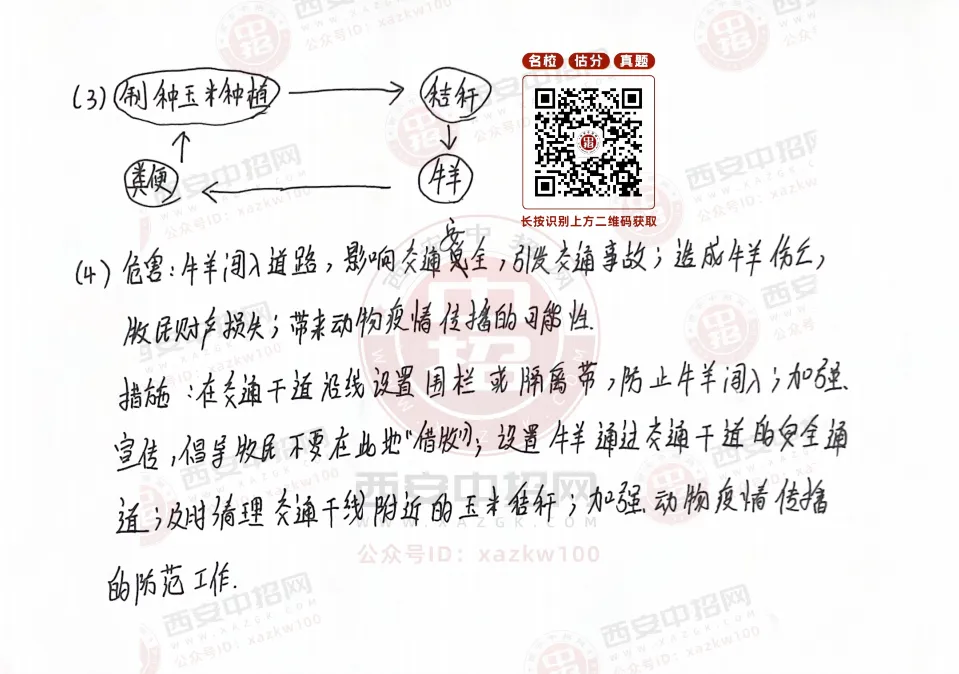 名校 估分 真题
(3) 制种玉米种植 秸秆
粪便 牛羊
长按识别上方二维码获取
安
(4) 危害:牛羊闯入道路,影响交通全,引发交通事故;造成牛羊伤亡,
牧民财产损失;带来动物疫情传播的可能性.
措施:在交通干道沿线设置围栏或隔离带,防止牛羊闯入;加强
宣传,倡导牧民不要在此地“借牧”;设置牛羊通过交通干道的安全通
道;及时清理交通干线附近的玉米秸秆;加强动物疫情传播
的防范工作.
西安中招网
WWW.XAZGK.COM
公众号ID:xazkw100